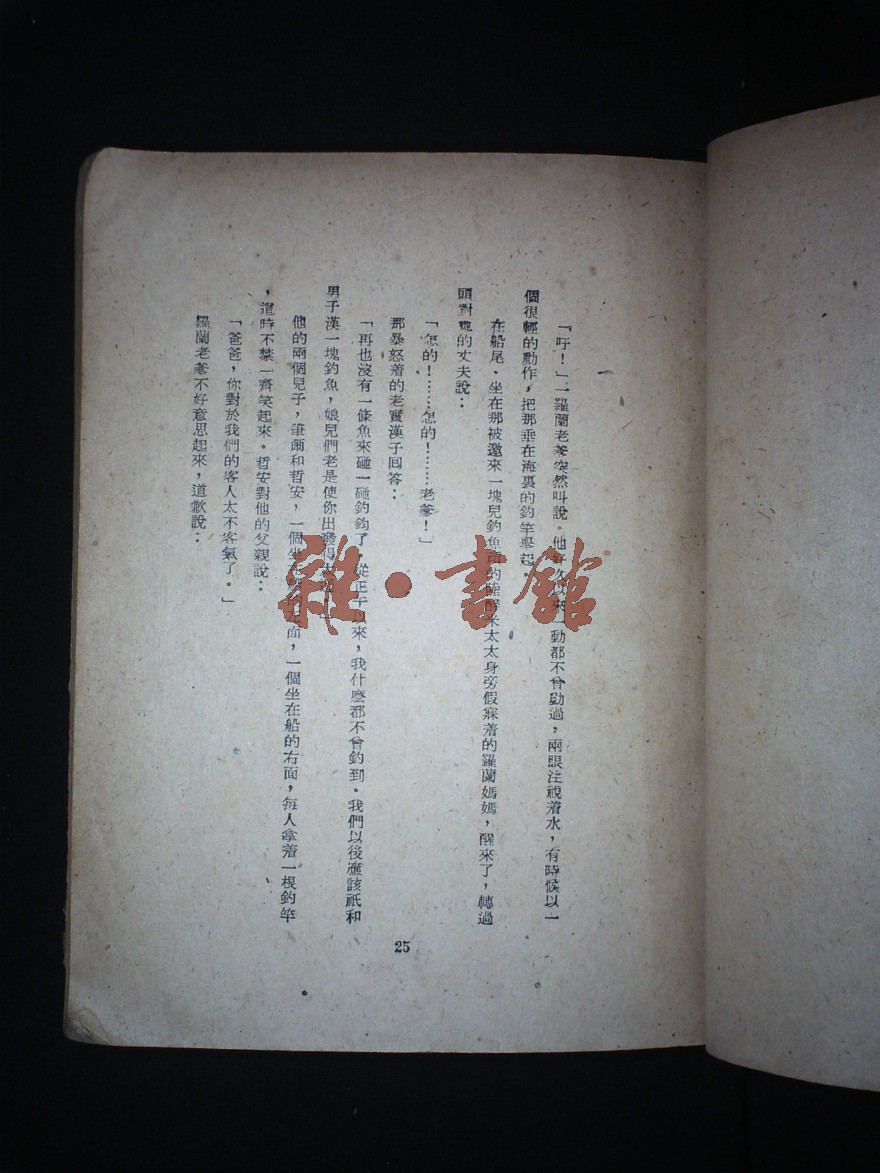 一
「吁!」一羅蘭老爹突然叫說。他好久以來一動都不曾動過,兩眼注視着水,有時候以一
個很輕的動作,把那垂在海裏的釣竿舉起。
在船尾。坐在那被邀來一塊兒釣魚的米太太身旁假寐着的羅蘭媽媽,醒來了,轉過
頭對她的丈夫說:
「怎的!……怎的!……老爹!」
那暴怒着的老實漢子回答:
「再也沒有一條魚來碰一碰釣鈎了,從正午以來,我什麼都不曾釣到。我們以後應該祇和
男子漢一塊釣魚,娘兒們老是使你出發得
他的兩個兒子,筆爾和哲安,一個坐在船的左面,一個坐在船的右面,每人拿着一根釣竿
,這時不禁一齊笑起來。哲安對他的父親說:
「爸爸,你對於我們的客人太不客氣了。」
羅蘭老爹不好意思起來,道歉說:
25
雜·書館